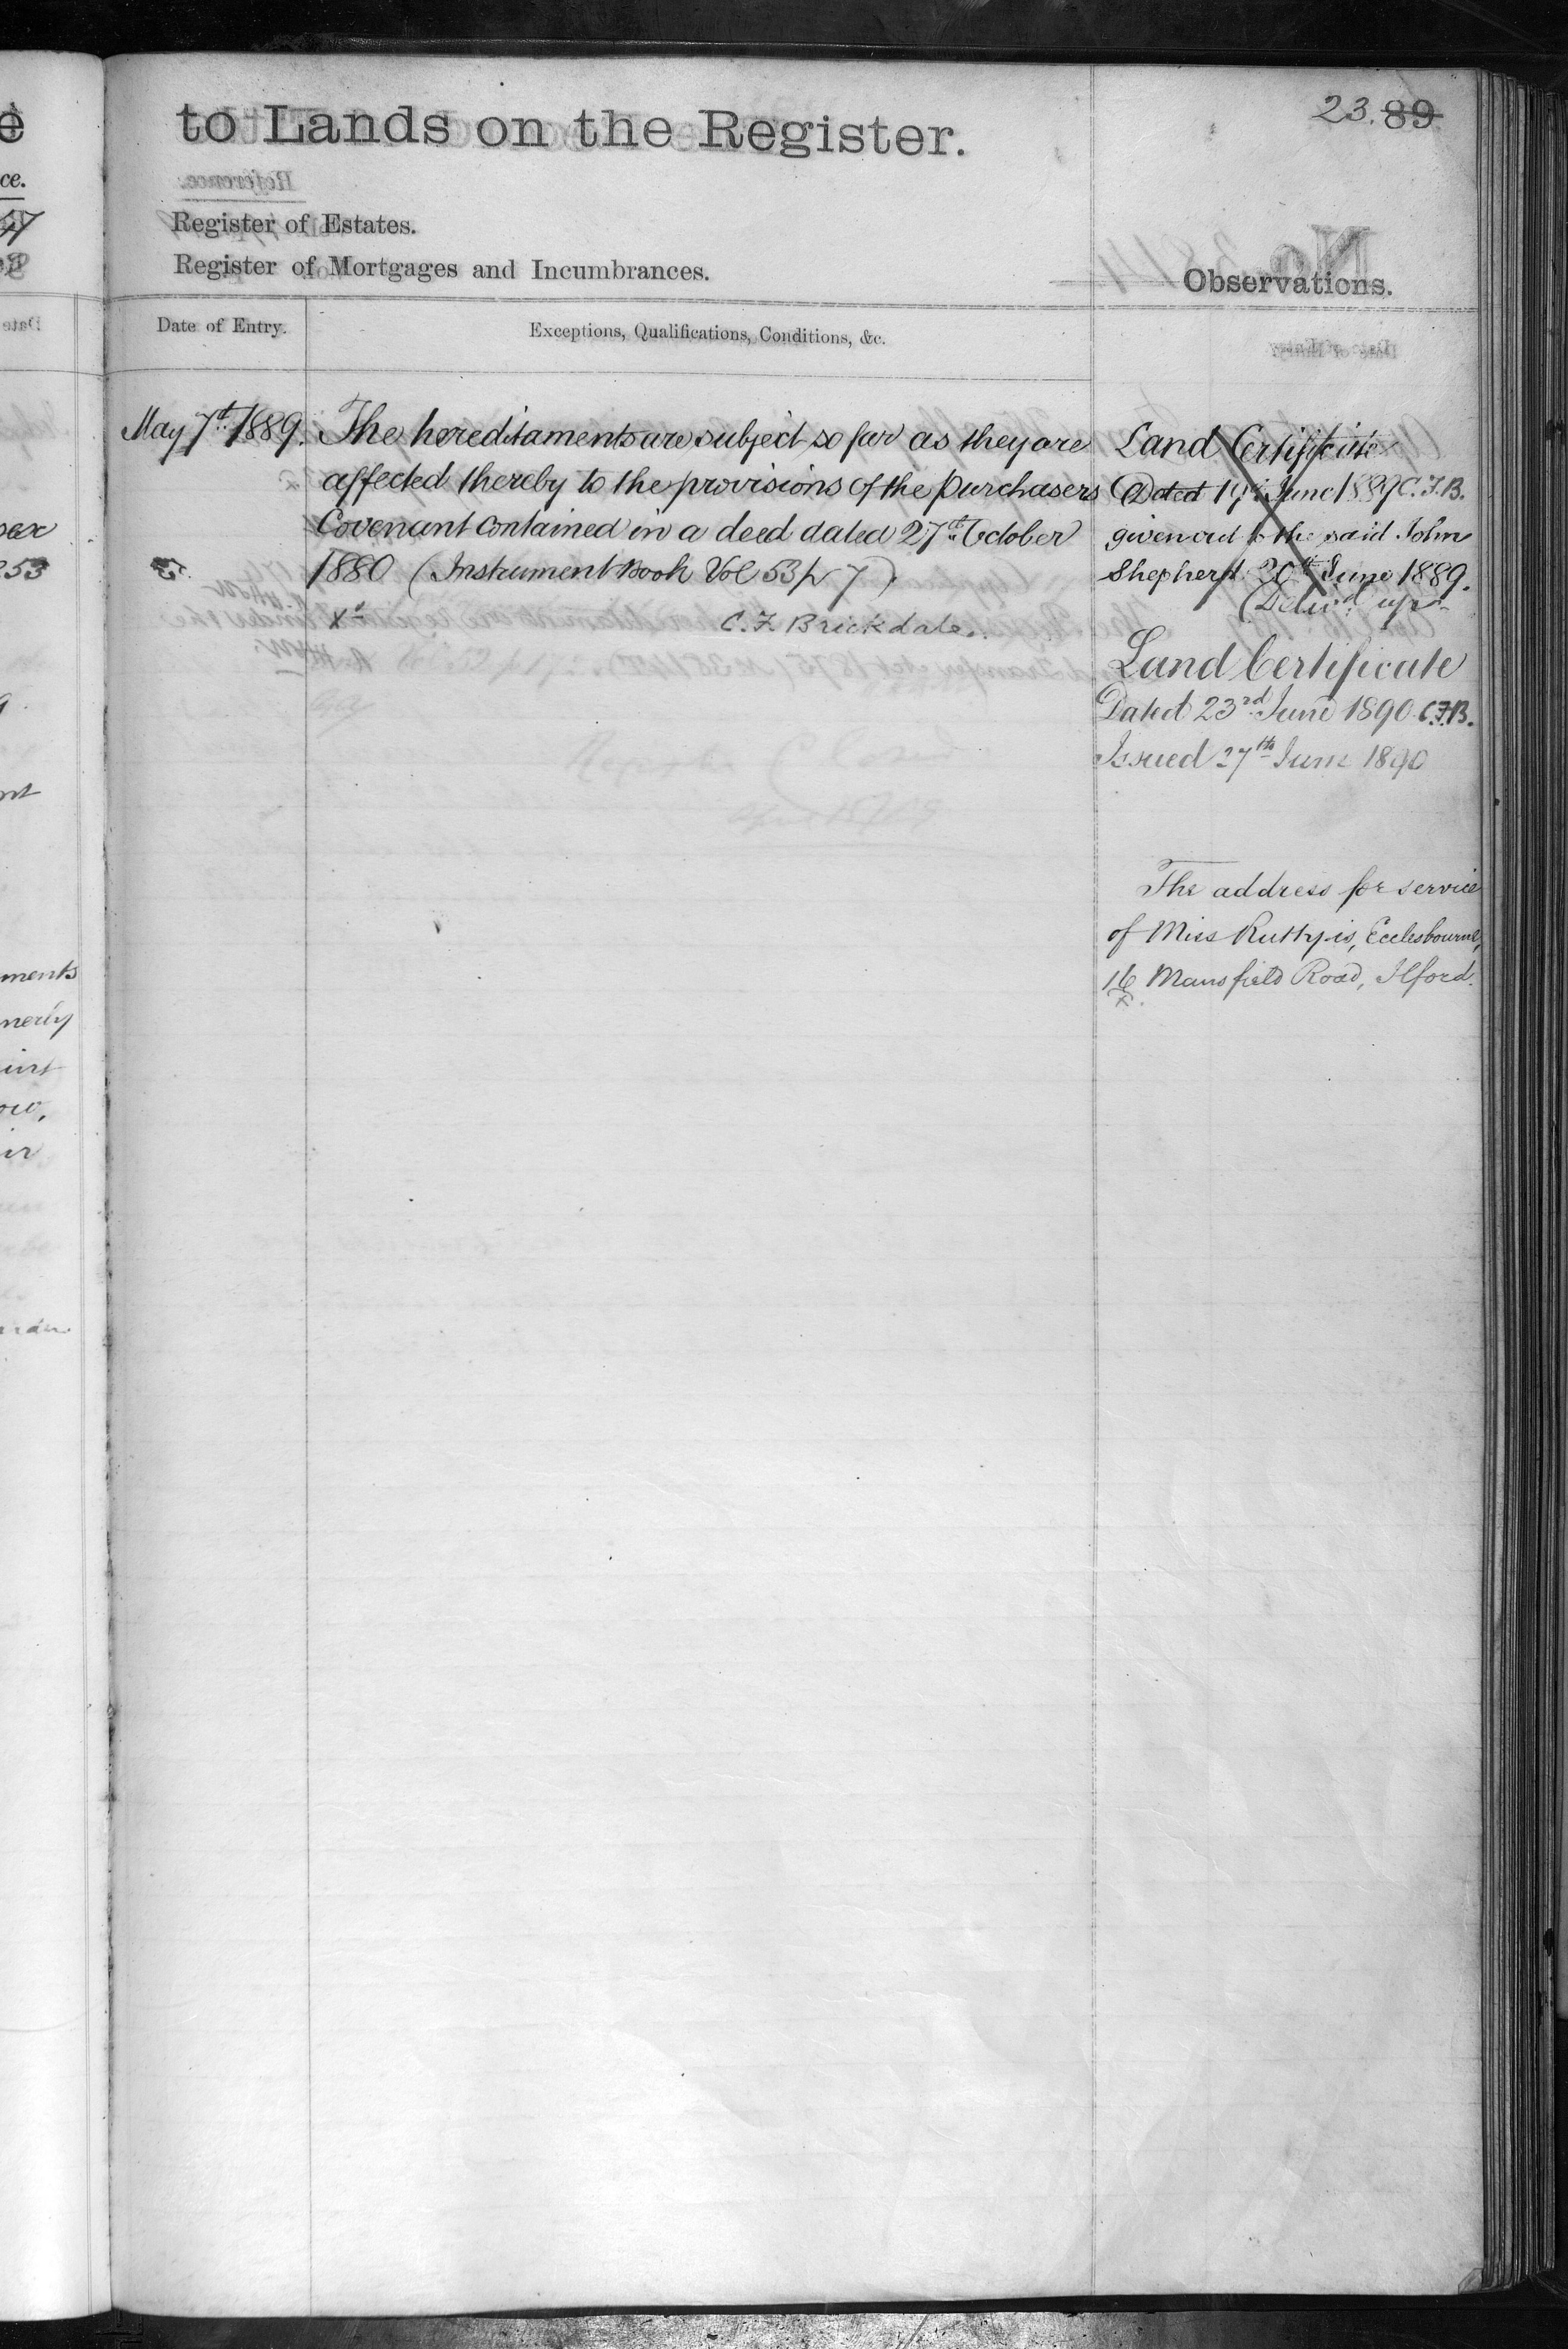 to Lands on the Register.
23. 89
Register of Estates.
Register of Mortgages and Incumbrances.
Observations.
Date of Entry.
Exceptions, Qualifications, Conditions, &c.
May 7th 1889.
The hereditaments are subject so far as they are
affected thereby to the provisions of the purchasers
Covenant contained in a deed dated 27th October
1880 (Instrument Book Vol 53 p 7).
Xd
C. F. Brickdale.
Land Certificate
Dated 19th June 1889 C.F.B.
given out to the said John
Shepherd 20th June 1889.
(Deliv'd up
Land Certificate
Dated 23rd June 1890 C.F.B.
Issued 27th June 1890
The address for service
of Miss Rutty is, Ecclesbourne,
16 Mansfield Road, Ilford.
ce.
53
ments
nerly